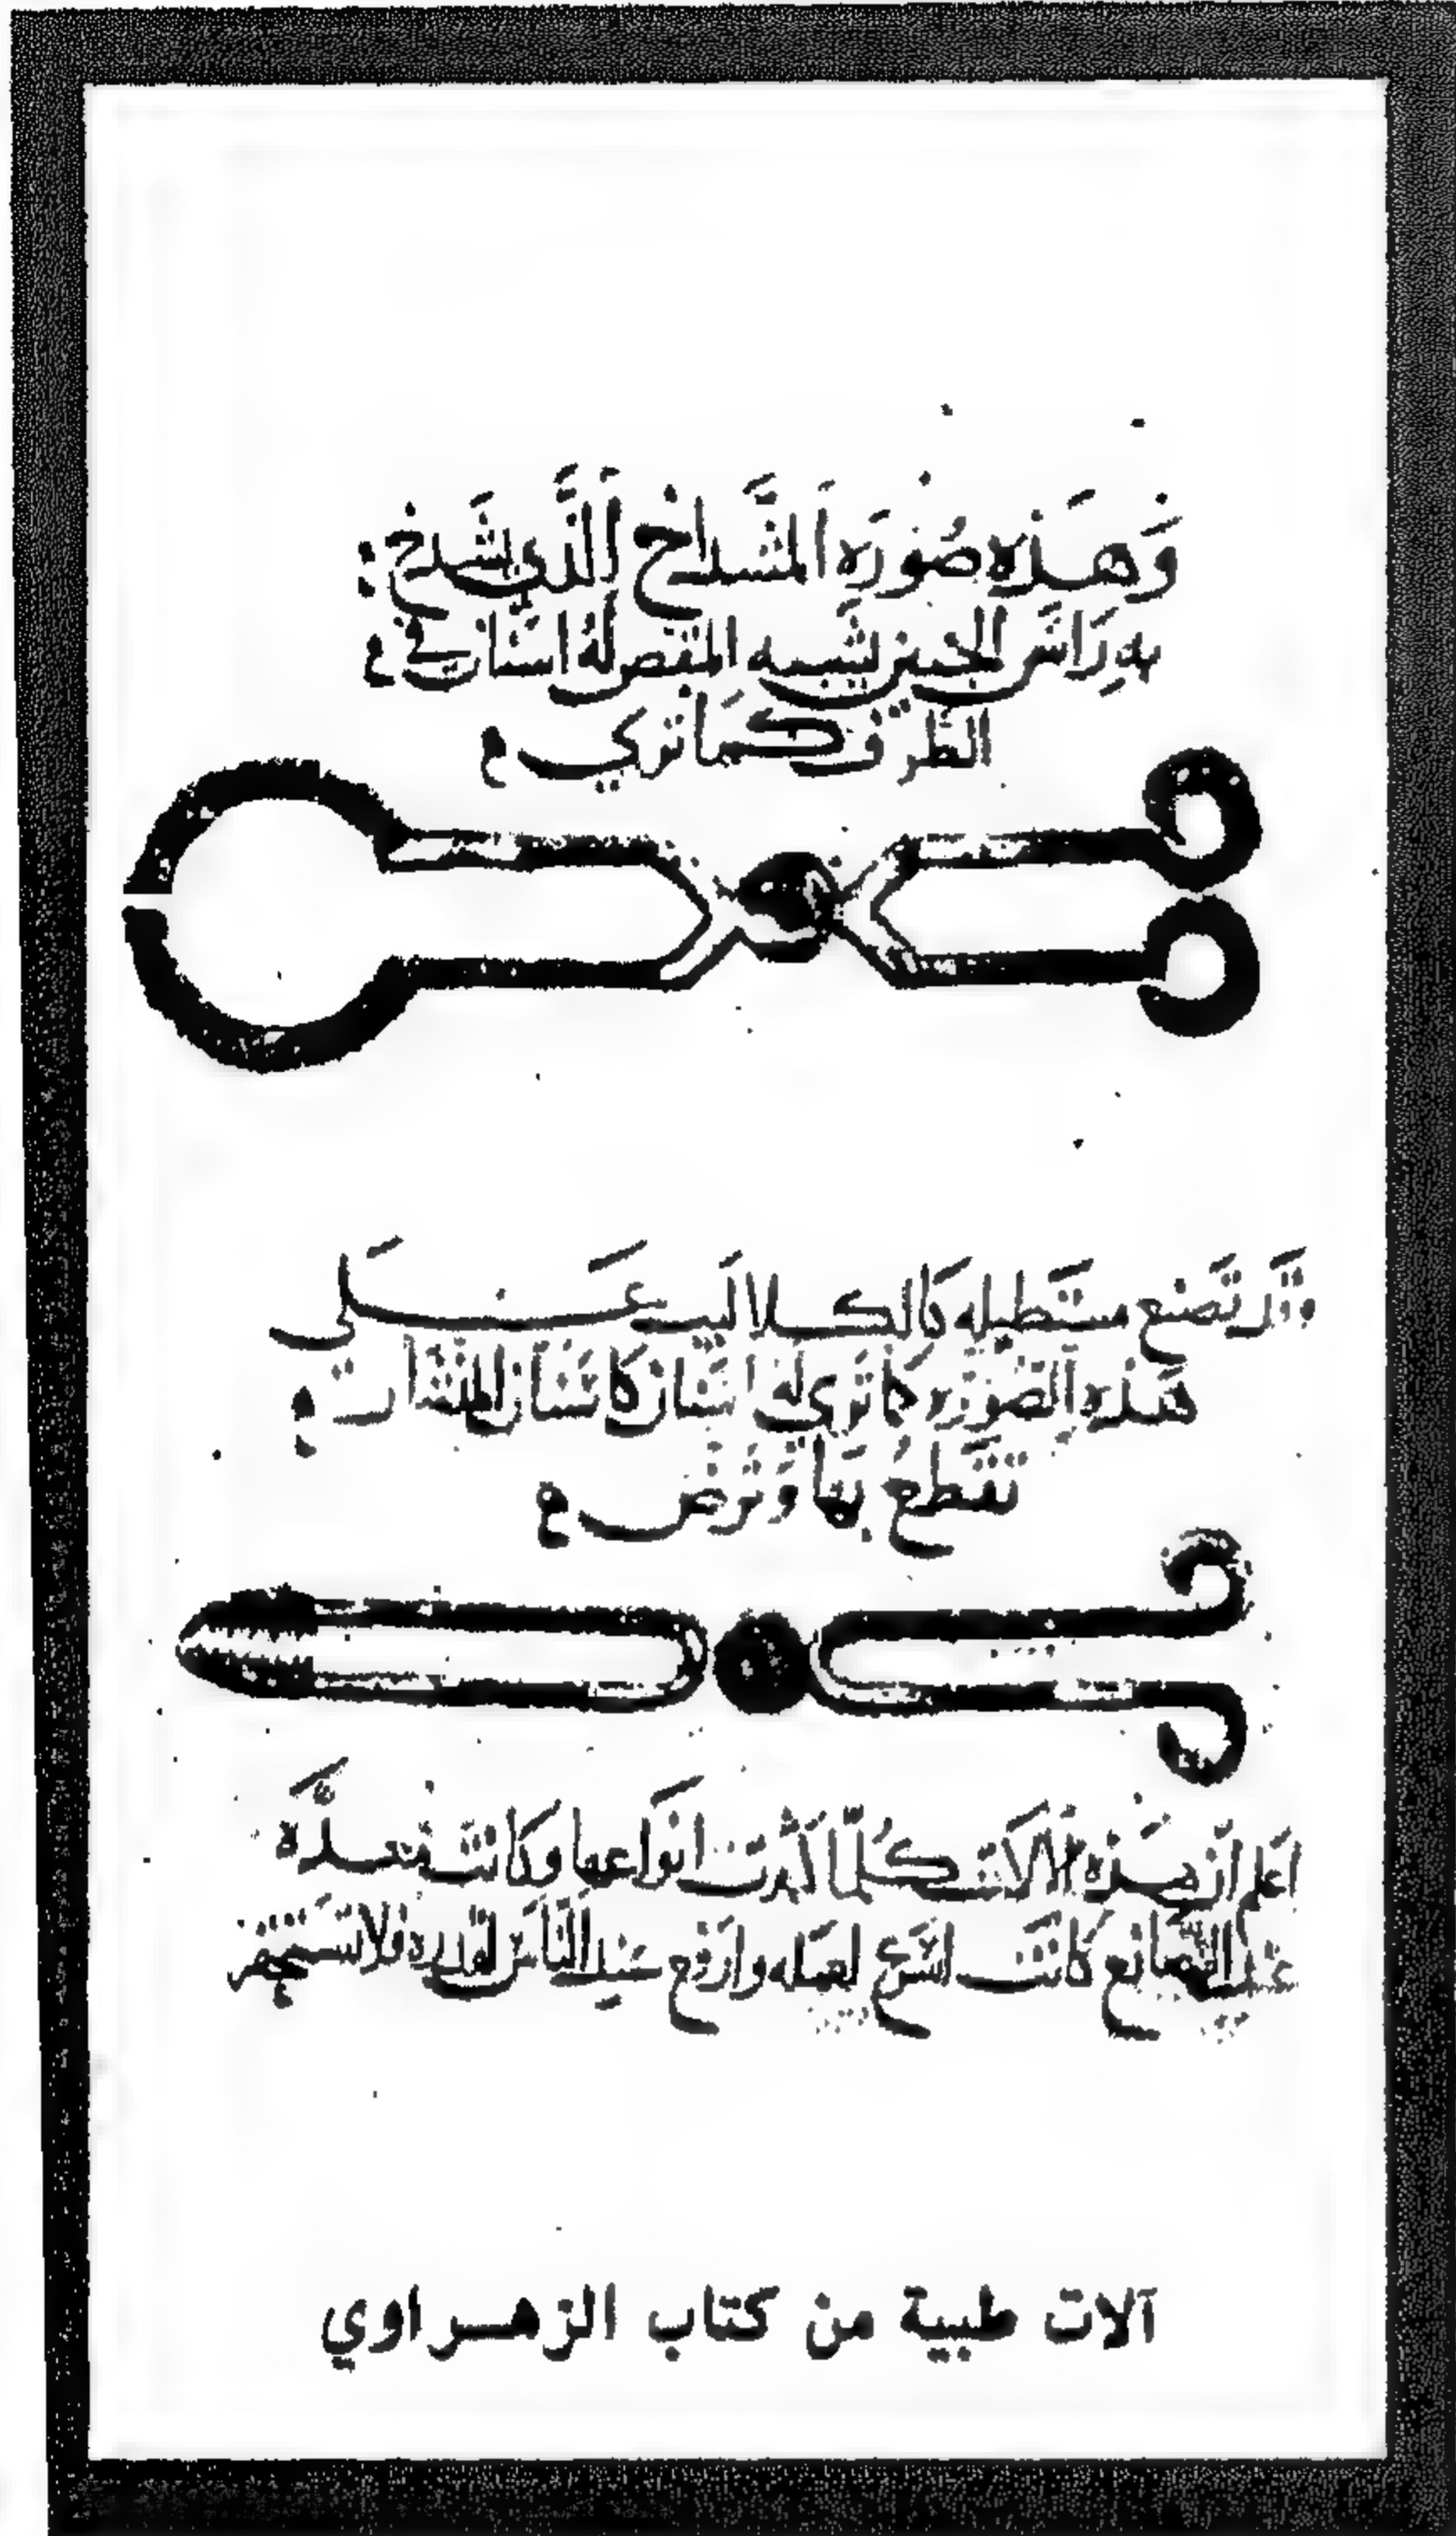 وَهَذِه صُورَة المشَّداخ الَّذِي يشَدخ :
به رَاسَ الجنين يشَبه المقص لهُ اسنان في
الطَّرف كَمَا تَرَي
وَقَد تَصنع مستَطيله كَالكلاليب عَلَى
هَذه الصُّورَه كمَا تَرَى لهَا اسنَان كَاسنَان المنشَار
تقَطعُ بهَا وَتَرُض
اعَلم ان هَذه الالاَت كُلّمَا كثرت انوَاعهَا وكَانَت معدَّة
عنْد الصَّانع كَانَت اسَرع لعمَله وارَفع عند النَّاسَ لقدره فلا تَستَحقر
آلات طبية من كتاب الزهراوي